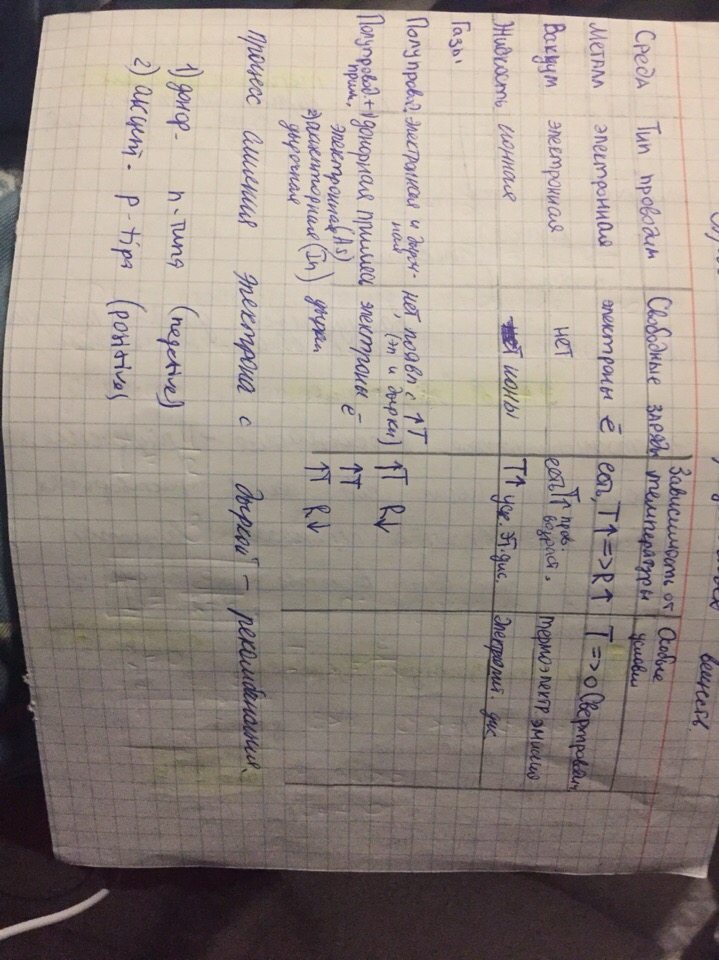 веществ.
Среда Тип проводим Свободные заряды Зависимость от температуры Особые условия
Металл электронная электроны ē есть, T↑=>R↑ T=>0 Сверхпроводим.
Вакуум электронная нет есть T↑ пров. возраст. термоэлектр эмиссия
Жидкость ионная ионы T↑ уск. эл. дис. Электролит. дис.
Газы
Полупровод. электронная и дыроч-
ная нет, появл с ↑T
(эл и дырки) ↑T R↓
Полупровод.+
прим. 1) донорная примесь электроны ē ↑T
электронная (As)
2) акцепторная (In) дырки ↑T R↓
дырочная
процесс слияния электрона с дыркой – рекомбинация.
1) донор. n-типа (negative)
2) акцепт. p-tipa (positive)